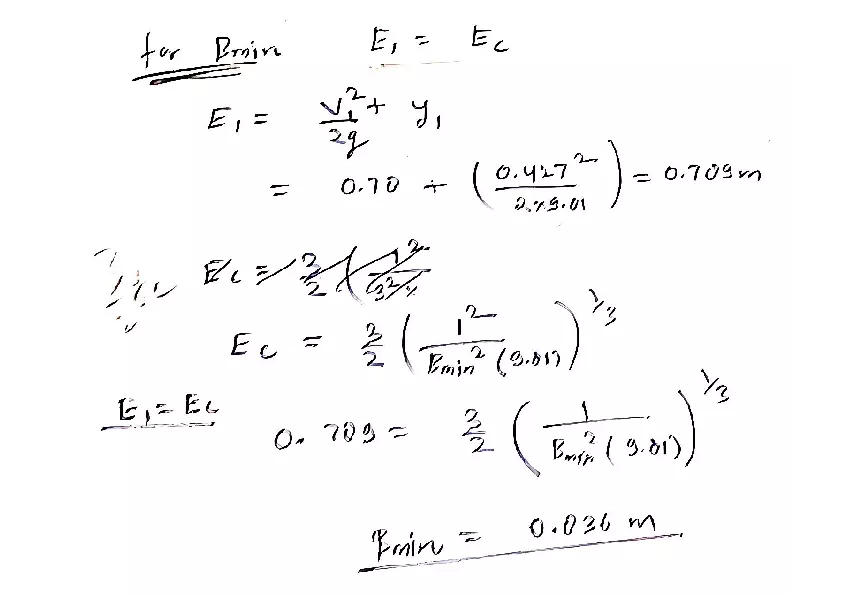 for Bmin E₁ = Ec
E₁ = V₁²/2g + y₁
= 0.70 + (0.427²/2×9.81) = 0.709m
Ec = 3/2 (1²/3²×
Ec = 3/2 (1²/Bmin² (9.81))^1/3
E₁ = Ec
0.709 = 3/2 (1/Bmin² (9.81))^1/3
Bmin = 0.036 m